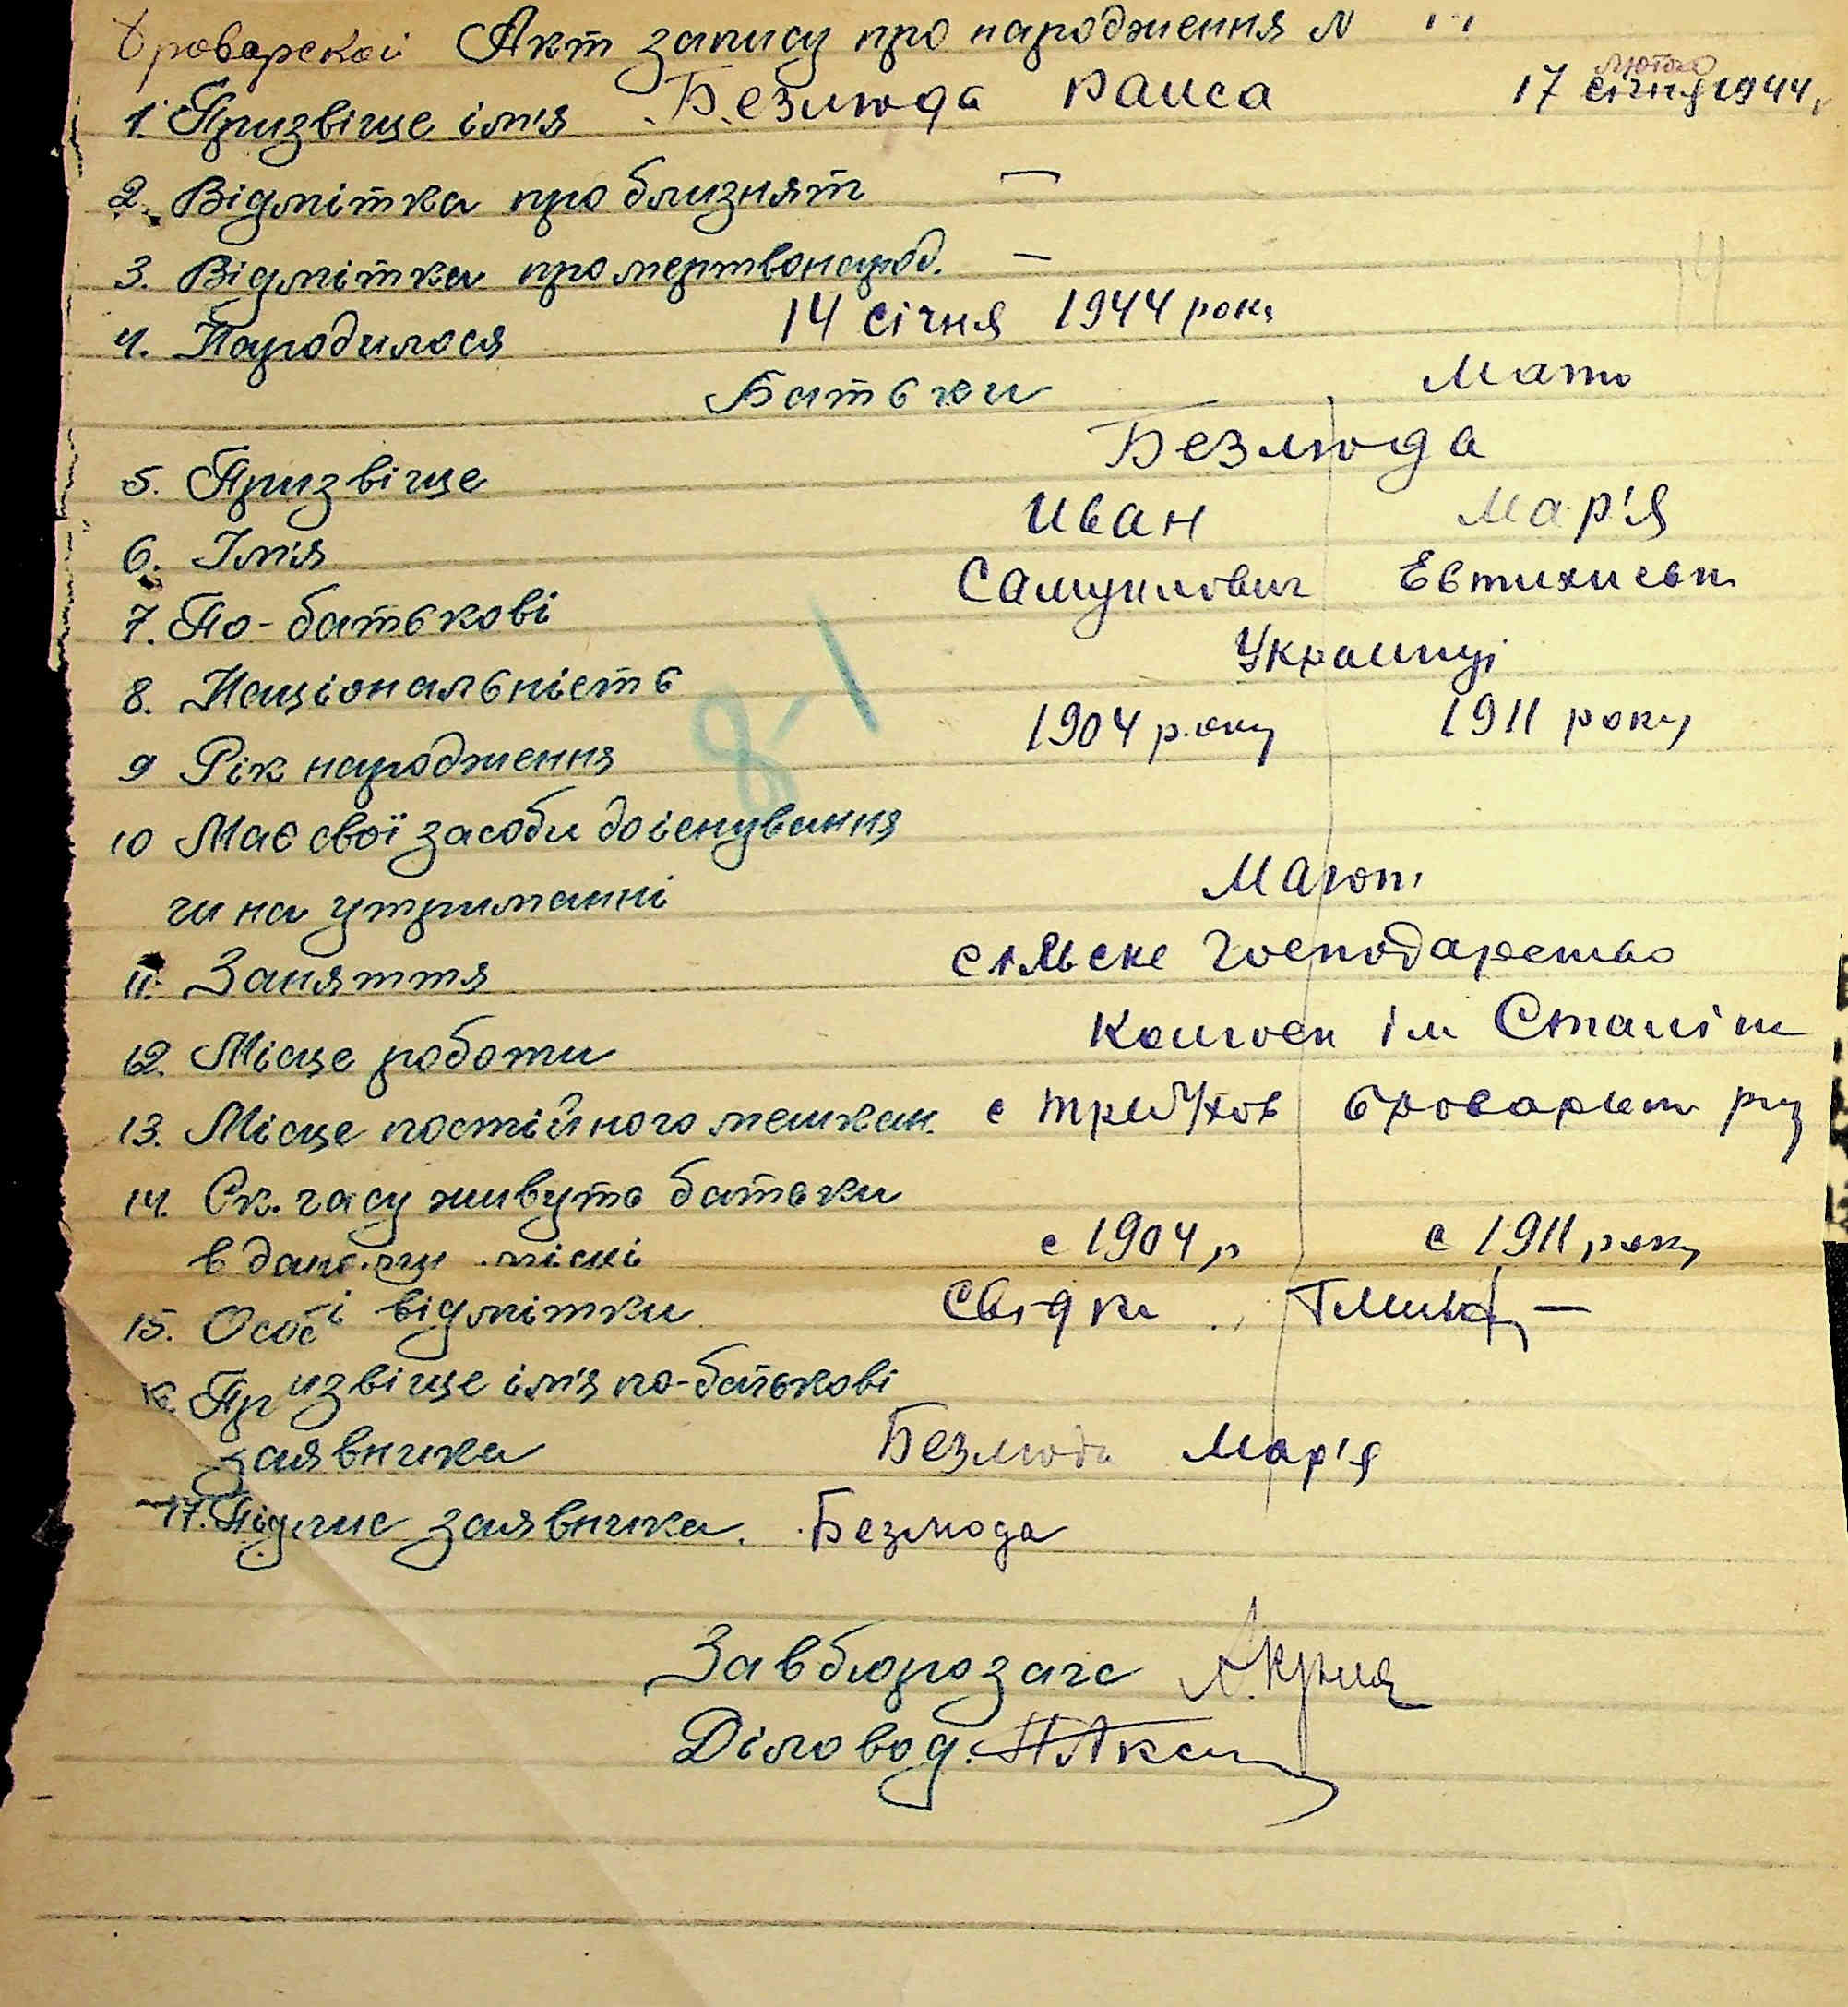 Броварской Акт запису про народження N
лютого
1. Призвіще ім'я Безлюда Раиса 17 січня 1944
2. Відмітка про близнят —
3. Відмітка про мертвонарод. —
14
4. Народилося 14 січня 1944 року
Батьки Мати
5. Призвіще Безлюда
6. Ім'я Иван Мар'я
7. По-батькові Самуилович Евтихиевн
8. Національність Украинці
8-1
9 Рік народження 1904 року 1911 року
10 Має свої засоби до існування
чи на утриманні Мают
11. Заняття сільське господарство
12. Місце роботи Колгосп ім Сталіна
13. Місце постійного мешкан. с Требухов Броварскт р-ну
14. Ск. часу живуть батьки
в даному місці с 1904 р с 1911 року
15. Особі відмітки Свідки —
16. Призвіще ім'я по-батькові
заявника Безлюда Мар'я
17. Підпис заявника. Безлюда
Завбюро загс
Діловод.